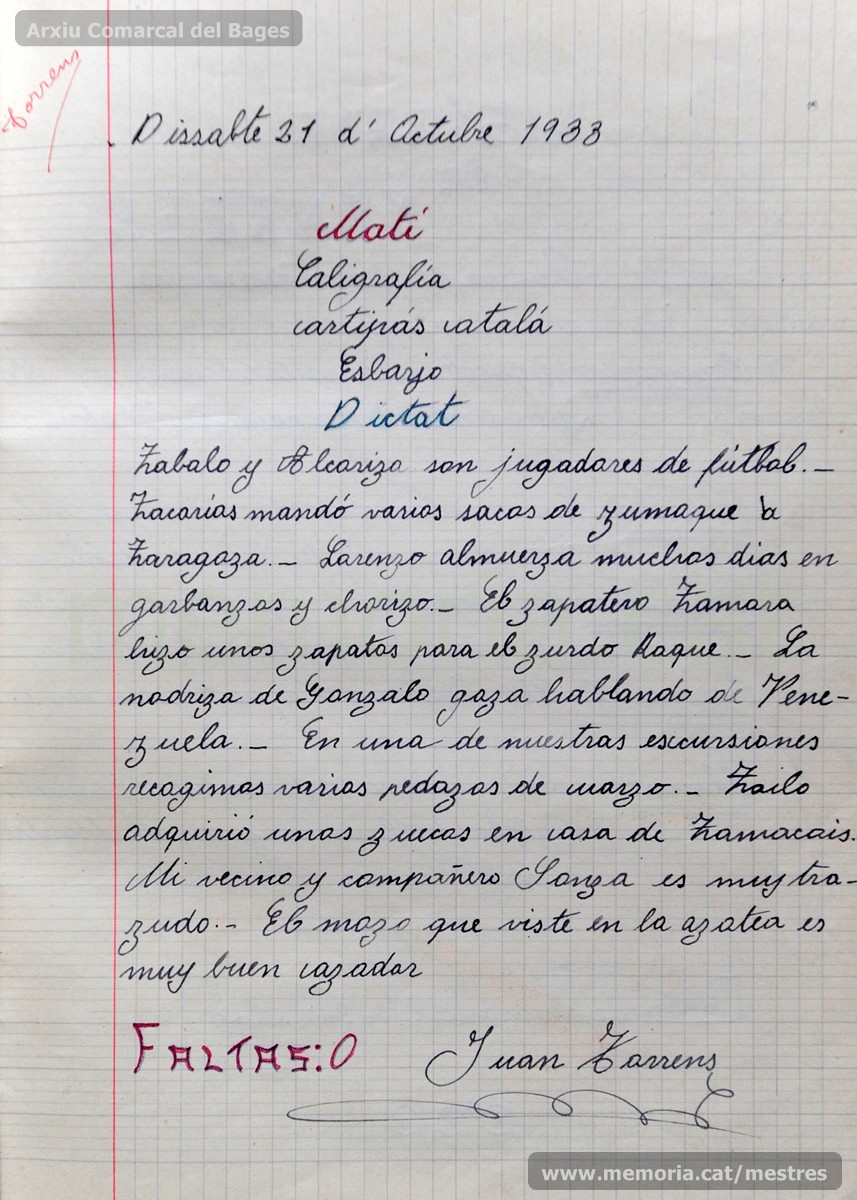 Arxiu Comarcal del Bages
Torrens
Dissabte 21 d' Octubre 1933
Matí
Caligrafía
cartipás catalá
Esbarjo
Dictat
Zabalo y Alcoriza son jugadores de fútbol.—
Zacarías mandó varios sacos de zumaque a
Zaragoza.— Lorenzo almuerza muchos dias en
garbanzos y chorizo.— El zapatero Zamora
hizo unos zapatos para el zurdo Roque.— La
nodriza de Gonzalo goza hablando de Vene-
zuela.— En una de nuestras excursiones
recogimos varios pedazos de cuarzo.— Zoilo
adquirió unos zuecos en casa de Zamacois.
Mi vecino y compañero Sonza es muy tra-
zudo.— El mozo que viste en la azotea es
muy buen cazador
FALTAS: 0
Juan Torrens
www.memoria.cat/mestres